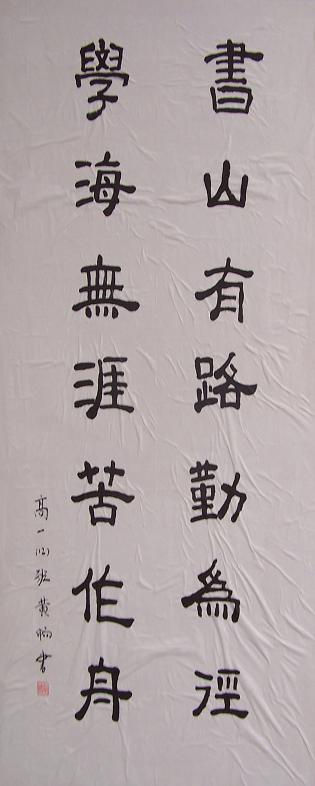 書山有路勤為徑
學海無涯苦作舟
高一
張黄
書